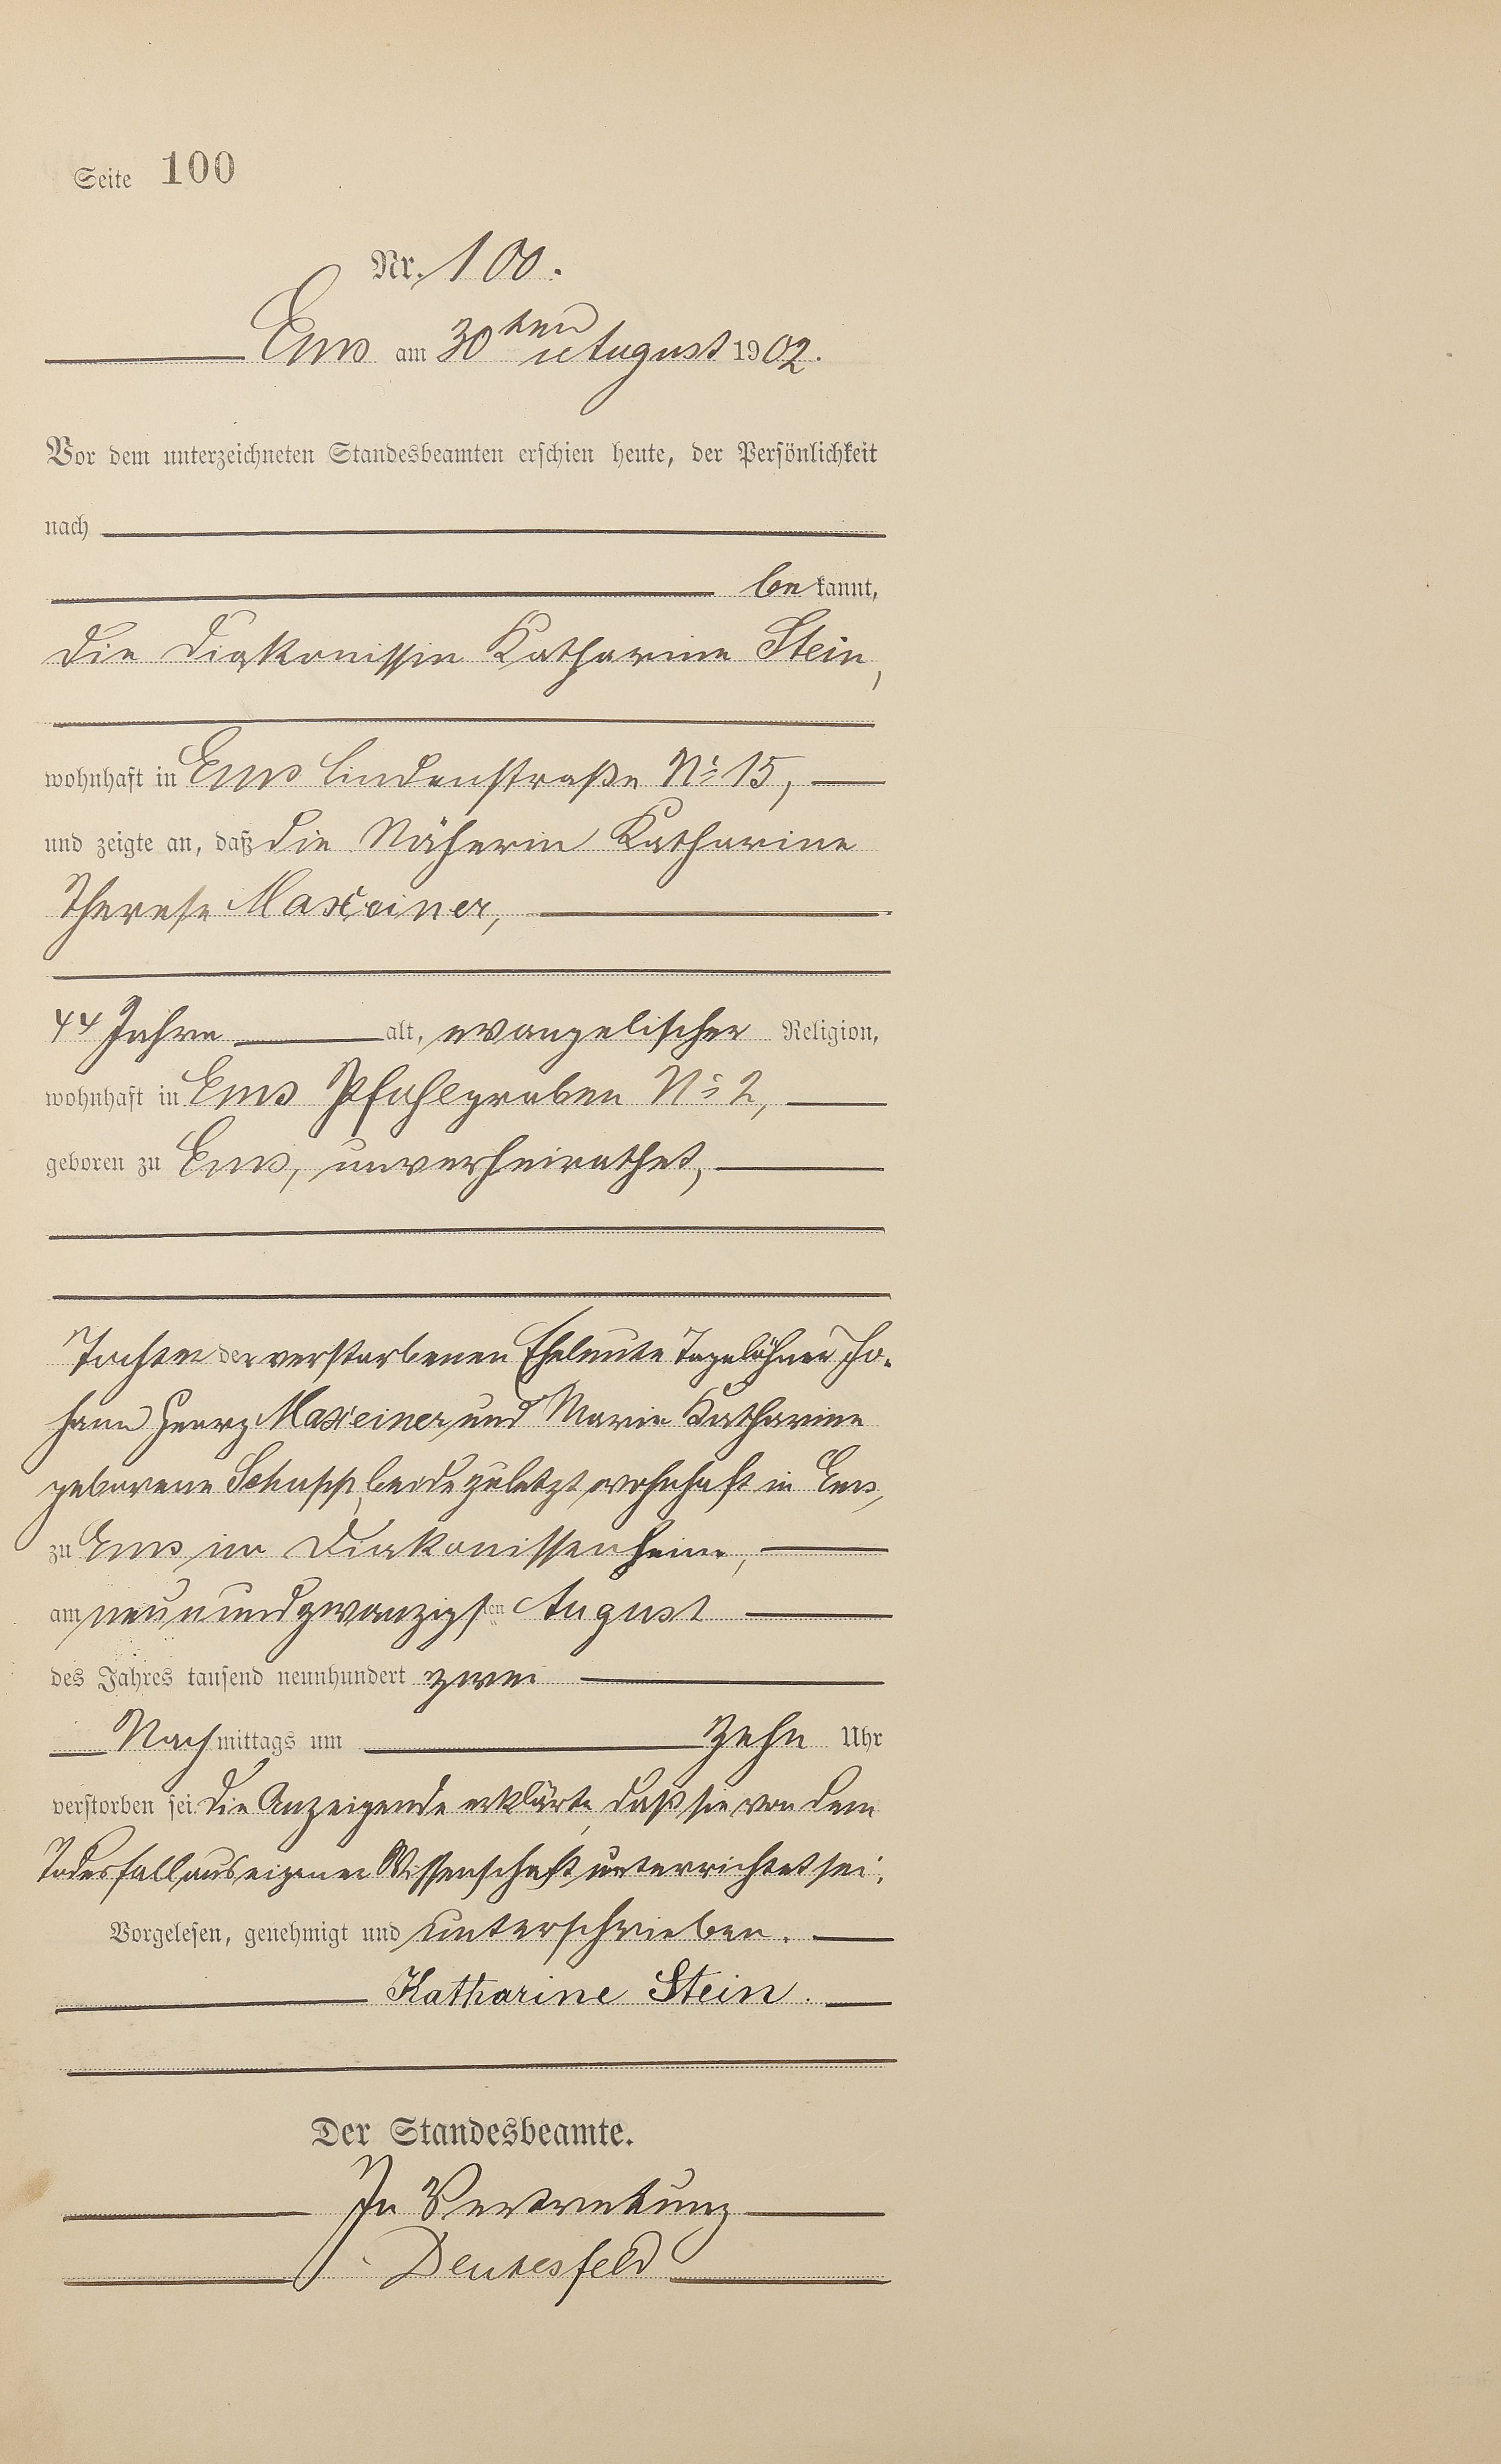 Seite 100
Nr. 100.
Ems am 30ten August 1902.
Vor dem unterzeichneten Standesbeamten erschien heute, der Persönlichkeit
nach
be kannt,
die Diakonissin Katharine Stein,
wohnhaft in Ems Lindenstraße No 15,
und zeigte an, daß die Näherin Katharine
Therese Maxeiner,
44 Jahre alt, evangelischer Religion,
wohnhaft in Ems Pfahlgraben No 2,
geboren zu Ems, unverheirathet,
Tochter der verstorbenen Eheleute Tagelöhner Jo-
hann Georg Maxeiner und Marie Katharine
geborene Schupp, beide zuletzt wohnhaft in Ems,
zu Ems im Diakonissenheim,
am neunundzwanzigsten August
des Jahres tausend neunhundert zwei
Nachmittags um zehn Uhr
verstorben sei. Die Anzeigende erklärte, daß sie von dem
Todesfall aus eigener Wissenschaft unterrichtet sei.
Vorgelesen, genehmigt und unterschrieben.
Katharine Stein.
Der Standesbeamte.
In Vertretung
Deutesfeld